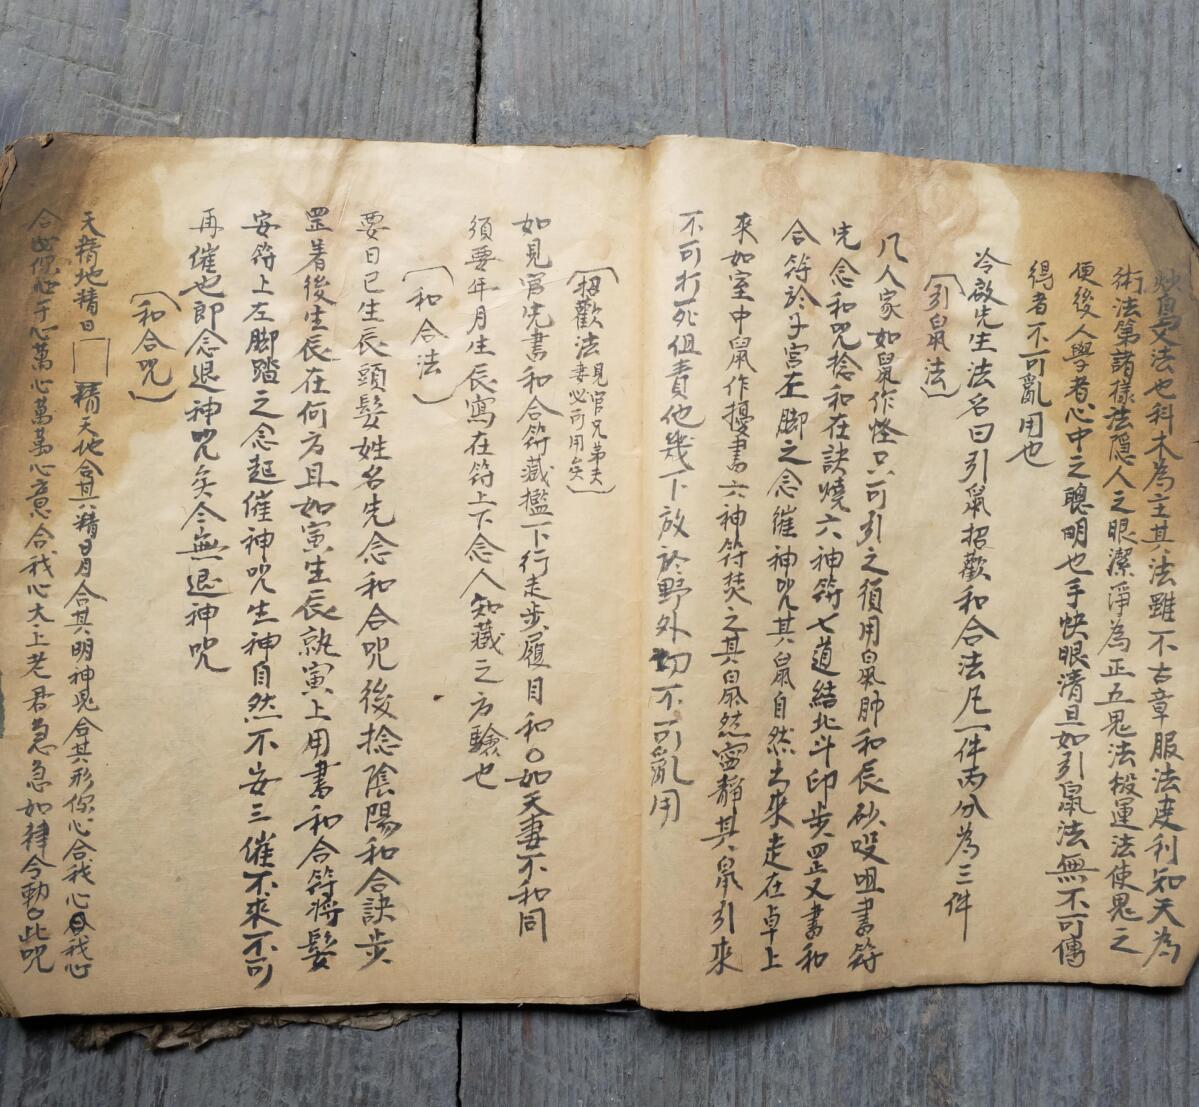 妙鳥文法也科木為主其法雖不古章服法度利知天為
術法第諸樣法隱人之眼潔淨為正五鬼法搬運法使鬼之
便後人學者心中之聰明也手快眼清旦如引鼠法無不可傳
得者不可亂用也
冷啟先生法名曰引鼠招歡和合法凡一件丙分為三件
〔引鼠法〕
凡人家如鼠作怪只可引之須用鼠肺和辰砂咀書符
先念和咒捻和在訣燒六神符七道結北斗印步罡又書和
合符於子宮左脚之念催神咒其鼠自然出來走在卓上
來如室中鼠作擾書六神符焚之其鼠然寧靜其鼠引來
不可打死但責他幾下放於野外切不可亂用
〔招歡法見官兄弟夫妻必可用矣〕
如見官先書和合符藏檻下行走步履目和〇如天妻不和同
須要年月生辰寫在符上下念人知藏之方驗也
〔和合法〕
要日己生辰頭髮姓名先念和合咒後捻陰陽和合訣步
罡着後生辰在何方且如寅生辰就寅上用書和合符將髮
安符上左脚踏之念起催神咒生神自然不安三催不來不可
再催也即念退神咒矣今無退神咒
〔和合咒〕
天精地精日精天地合其精日月合其明神鬼合其形你心合我心我心
合你心千心萬心萬萬心意合我心太上老君急急如律令勅〇此咒